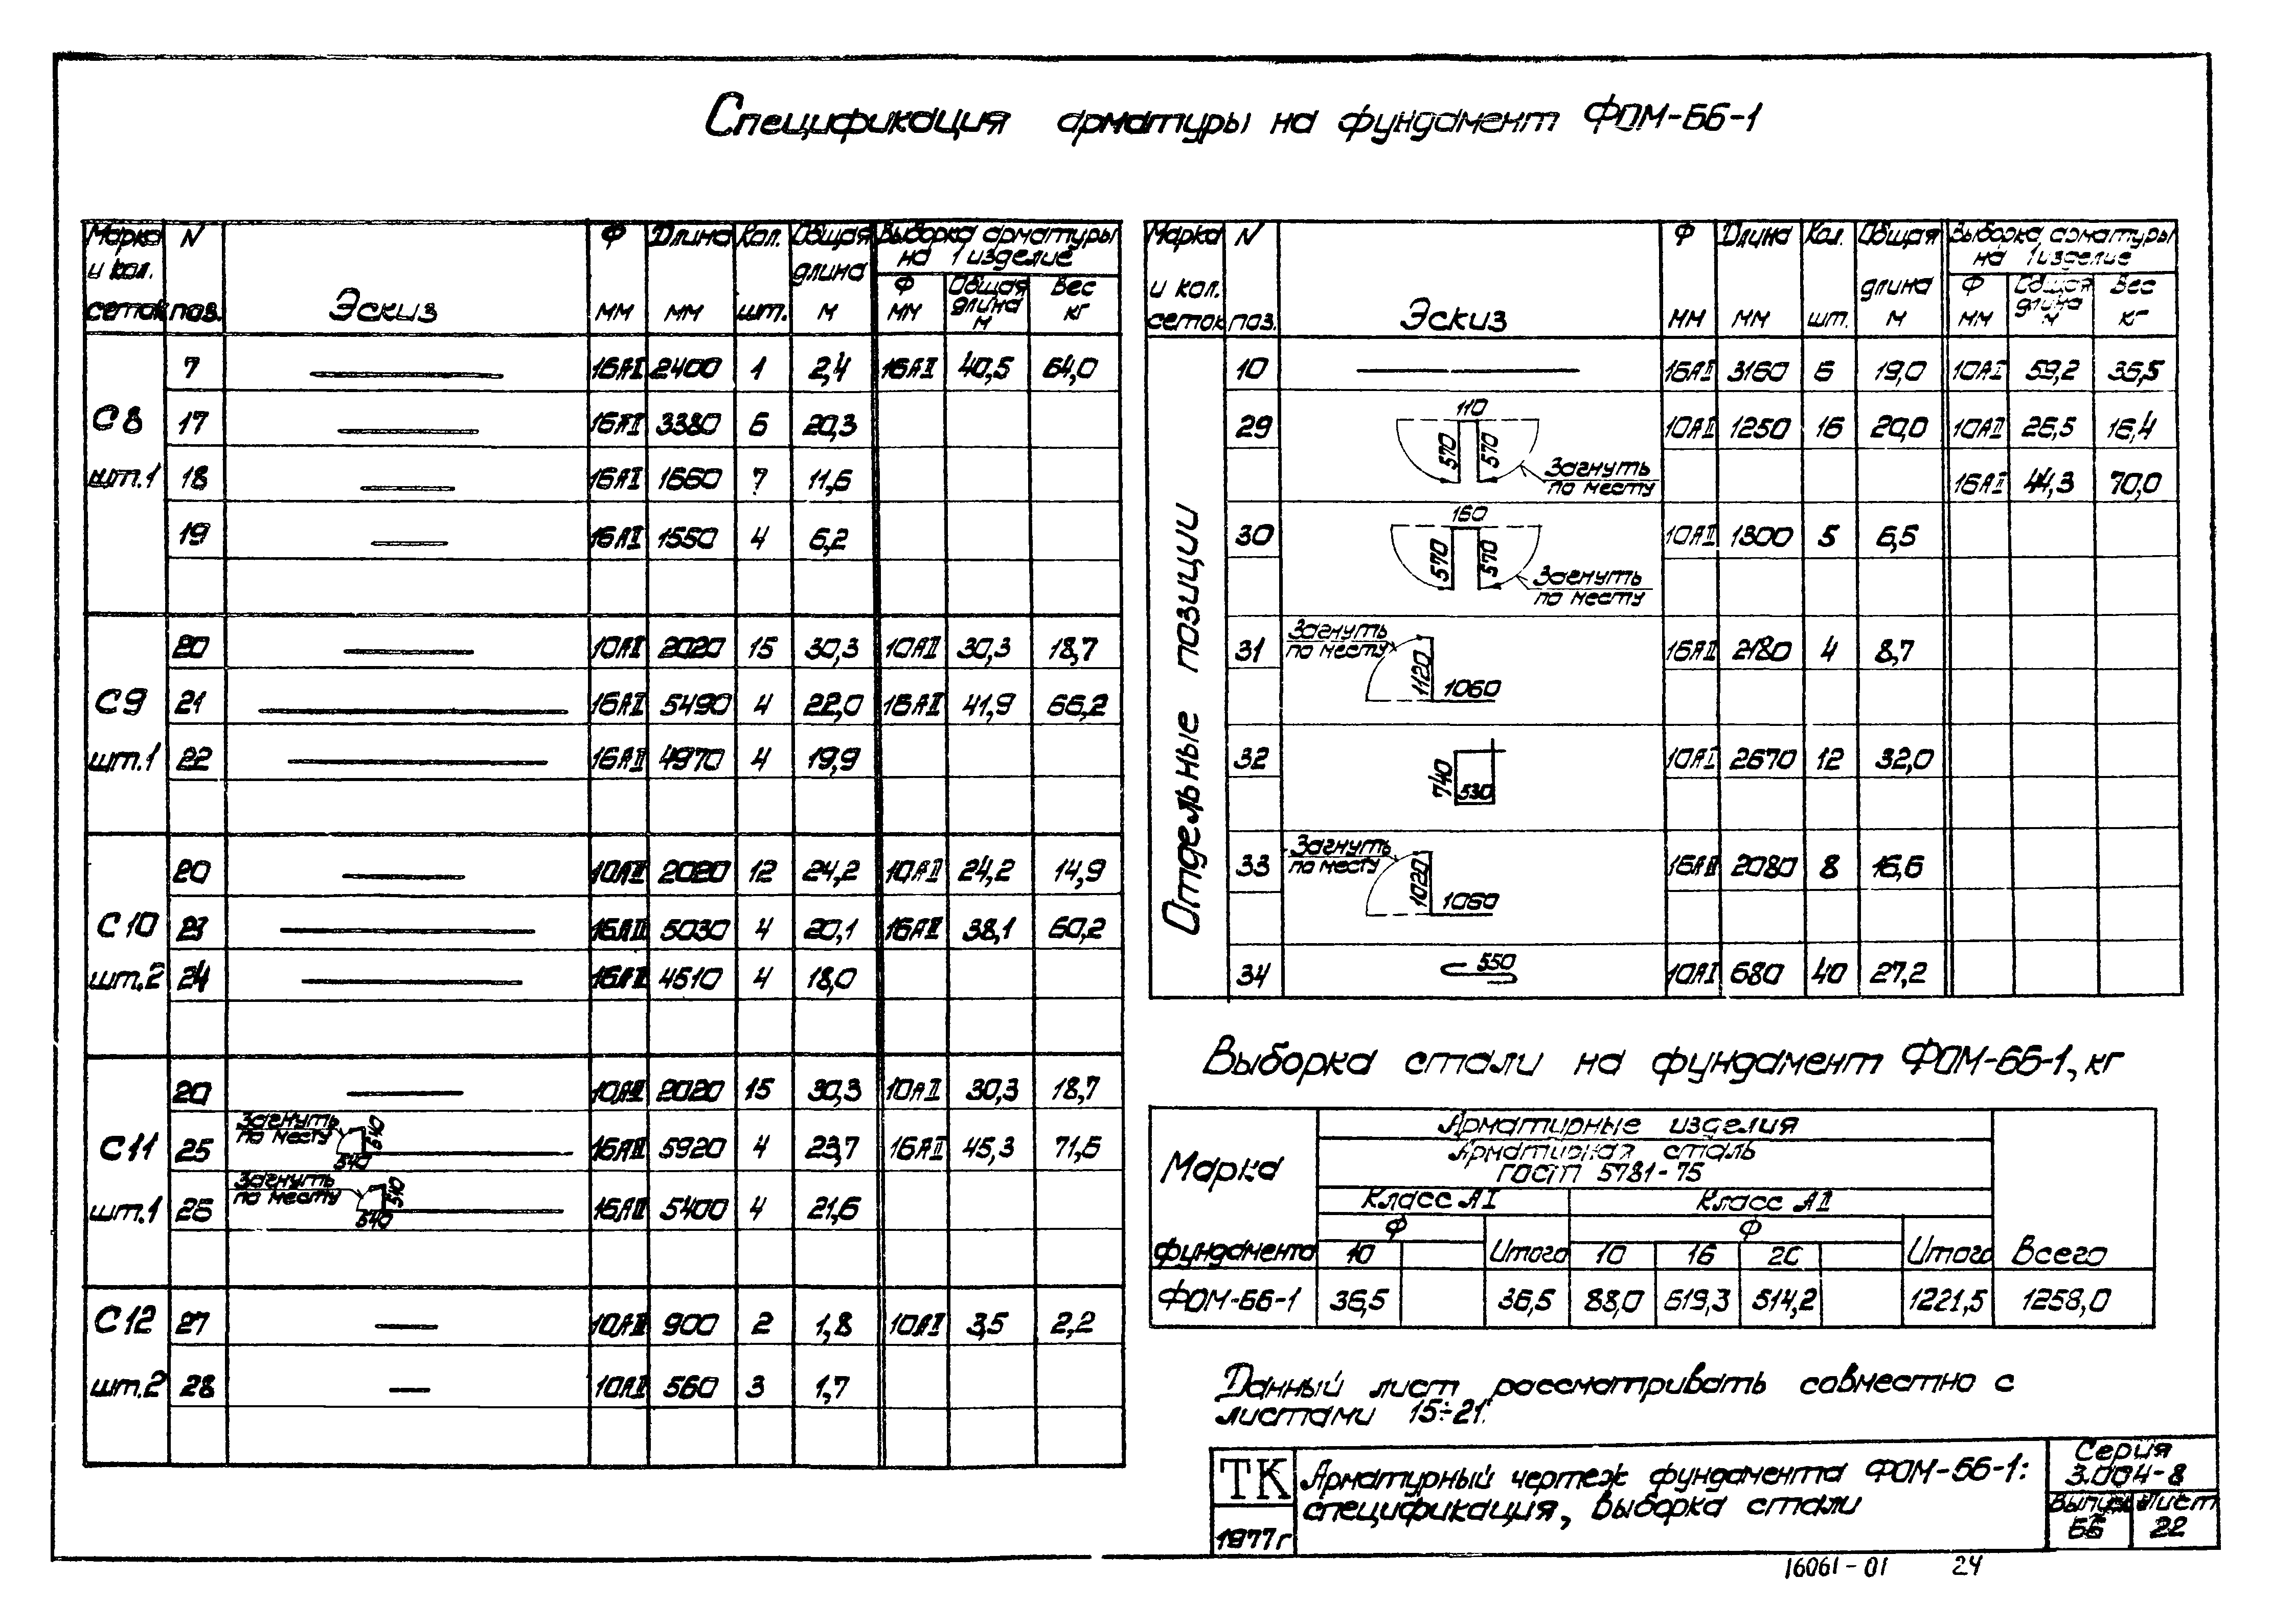 Спецификация арматуры на фундамент ФОМ-66-1
Марка и кол. сеток N поз. Эскиз Ф мм Длина мм Кол. шт. Общая длина м Выборка арматуры на 1 изделие
Ф мм Общая длина м Вес кг
С8 шт.1
7 16АII 2400 1 2,4 16АII 40,5 64,0
17 16АII 3380 6 20,3
18 16АII 1660 7 11,6
19 16АII 1550 4 6,2
С9 шт.1
20 10АII 2020 15 30,3 10АII 30,3 18,7
21 16АII 5490 4 22,0 16АII 41,9 66,2
22 16АII 4970 4 19,9
С10 шт.2
20 10АII 2020 12 24,2 10АII 24,2 14,9
23 16АII 5030 4 20,1 16АII 38,1 60,2
24 16АII 4510 4 18,0
С11 шт.1
20 10АII 2020 15 30,3 10АII 30,3 18,7
25 Загнуть по месту 540 640 16АII 5920 4 23,7 16АII 45,3 71,6
26 Загнуть по месту 540 510 16АII 5400 4 21,6
С12 шт.2
27 10АII 900 2 1,8 10АII 3,5 2,2
28 10АII 560 3 1,7
Марка и кол. сеток N поз. Эскиз Ф мм Длина мм Кол. шт. Общая длина м Выборка арматуры на 1 изделие
Ф мм Общая длина м Вес кг
Отдельные позиции
10 16АII 3160 6 19,0 10АI 59,2 36,5
29 110 570 570 Загнуть по месту 10АII 1250 16 20,0 10АII 26,5 16,4
16АII 44,3 70,0
30 160 570 570 Загнуть по месту 10АII 1300 5 6,5
31 Загнуть по месту 1120 1060 16АII 2180 4 8,7
32 740 530 10АI 2670 12 32,0
33 Загнуть по месту 1020 1060 16АII 2080 8 16,6
34 550 10АI 680 40 27,2
Выборка стали на фундамент ФОМ-66-1, кг
Марка фундамента
Арматурные изделия
Арматурная сталь
ГОСТ 5781-75
Класс АI Класс АII
Ф Ф
10 Итого 10 16 20 Итого Всего
ФОМ-66-1 36,5 36,5 88,0 619,3 514,2 1221,5 1258,0
Данный лист рассматривать совместно с
листами 15÷21.
ТК
1977г
Арматурный чертеж фундамента ФОМ-66-1:
спецификация, выборка стали
Серия
3.004-8
Выпуск Лист
66 22
16061-01 24